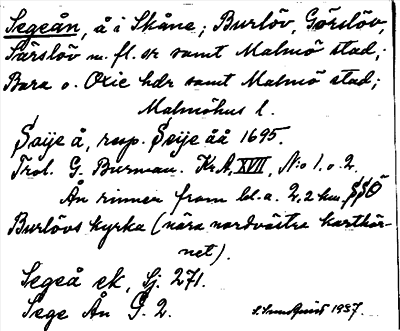 Segeån, å i Skåne; Burlöv, Görslöv,
Särslöv m. fl. sr samt Malmö stad;
Bara o. Oxie hdr samt Malmö stad;
Malmöhus l.
Saije å, resp. Seije åå 1695.
Trol. G. Burman. Kr.A, XVII, N:o 1. o. 2.
Ån rinner fram bl. a. 2,2 km SSÖ
Burlövs kyrka (nära nordvästra karthör-
net).
Segeå ek, Gj. 271.
Sege Ån G. 2.
1937.